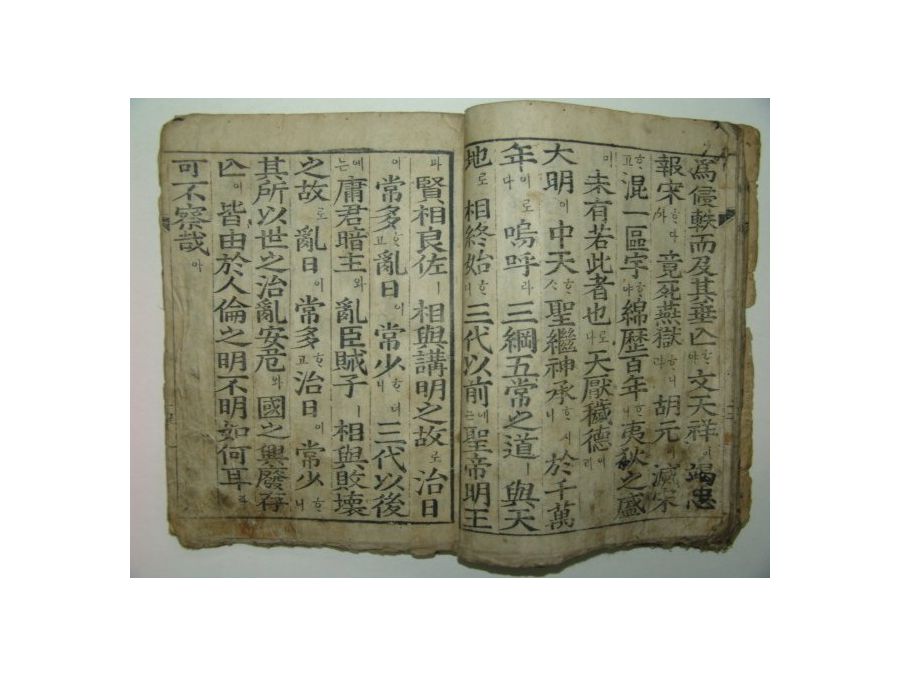 爲侵軼而及其棄亾ᄒᆞ야 文天祥이 竭忠
報宋ᄒᆞ다 竟死燕獄ᄒᆞ니라 胡元이 滅宋
ᄒᆞ고 混一區宇ᄒᆞ야 綿歷百年ᄒᆞ니 夷狄之盛
이 未有若此者也로다 天厭穢德이라
大明이 中天 聖繼神承ᄒᆞ시니 於千萬
年이로다 嗚呼라 三綱五常之道ㅣ 與天
地로 相終始ᄒᆞ니 三代以前네는 聖帝明王
과 賢相良佐ㅣ 相與講明之故로 治日
이 常多ᄒᆞ고 亂日이 常少ᄒᆞ더니 三代以後
에는 庸君暗主와 亂臣賊子ㅣ 相與敗壞
之故로 亂日이 常多ᄒᆞ고 治日이 常少ᄒᆞ니
其所以世之治亂安危와 國之興廢存
亾이 皆由於人倫之明不明如何耳라
可不察哉아